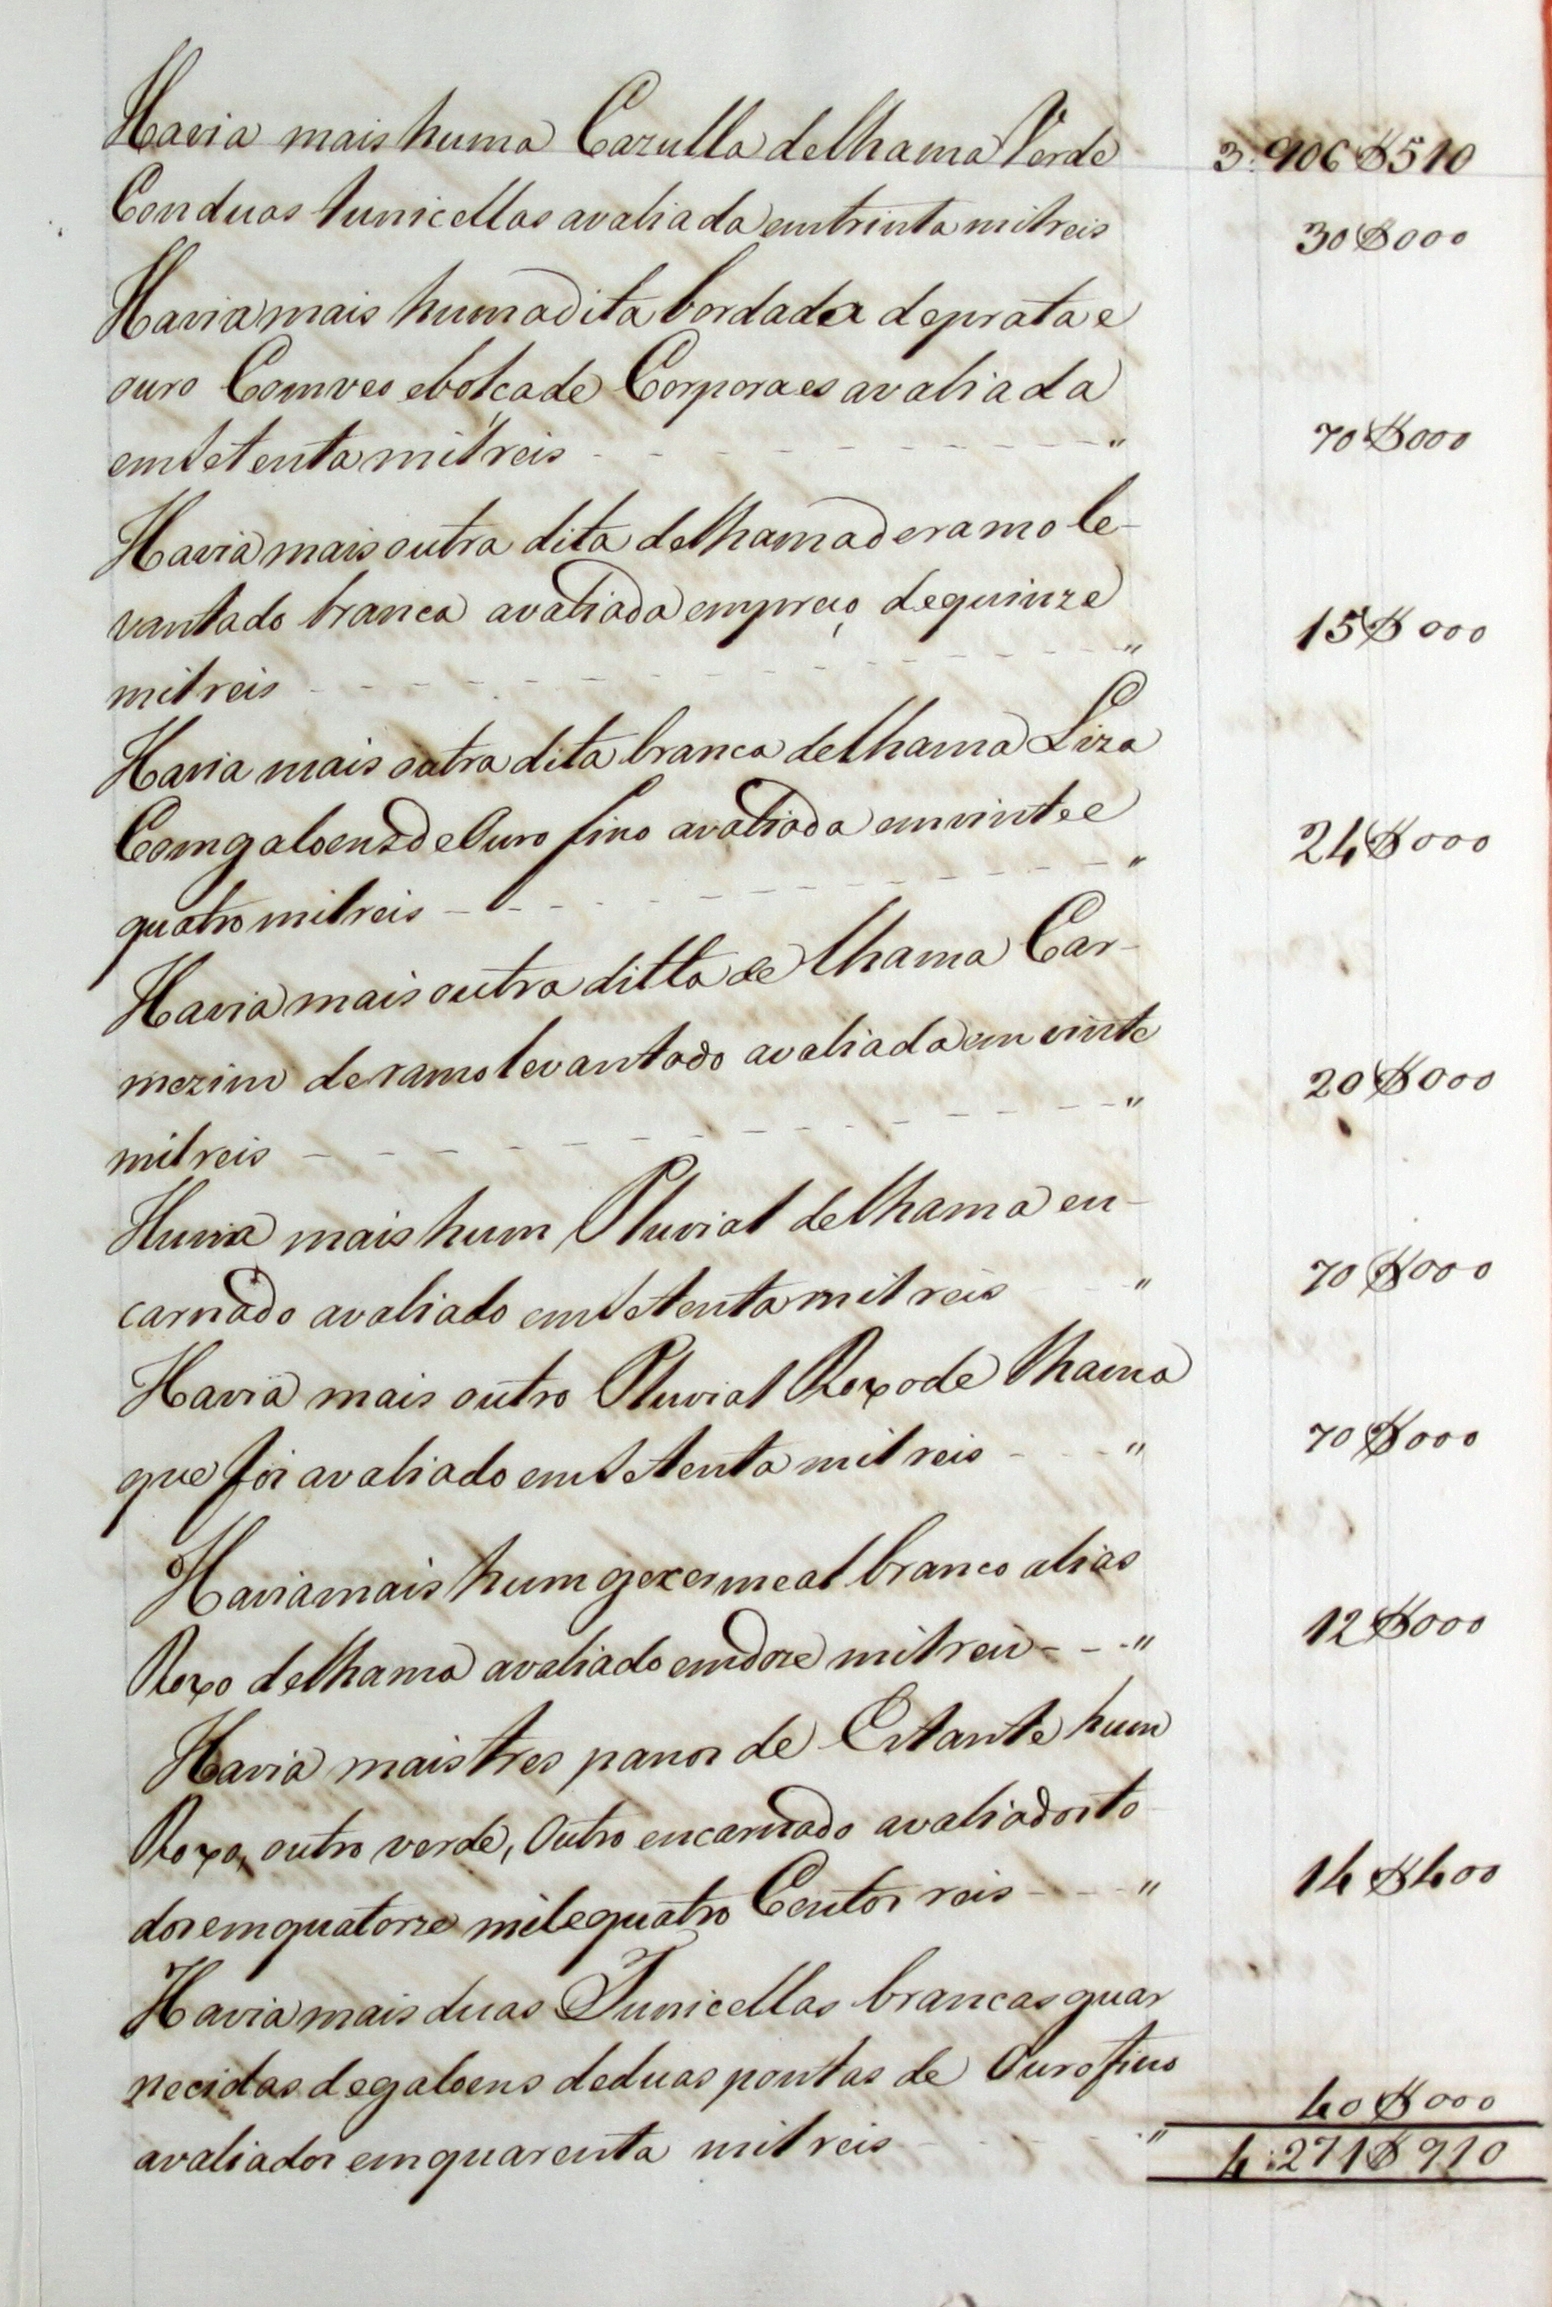 Havia mais huma Cazulla de lhama Verde 3:906$510
Con duas tunicellas avaliada em trinta mil reis 30$000
Havia mais huma dita bordada de prata e
ouro Com veo e bolça de Corporaes avaliada
em Setenta mil reis " 70$000
Havia mais outra dita de lhama de ramo le-
vantado branca avaliada em preço de quinze
mil reis " 15$000
Havia mais outra dita branca de lhama Liza
Com galoens de Ouro fino avaliada em vinte e
quatro mil reis " 24$000
Havia mais outra ditta de lhama Car-
mezim de ramo levantado avaliada em vinte
mil reis " 20$000
Havia mais hum Pluvial de lhama en-
carnado avaliado em Setenta mil reis " 70$000
Havia mais outro Pluvial Roxo de lhama
que foi avaliado em Setenta mil reis " 70$000
Havia mais hum branco alias
Roxo de lhama avaliado em doze mil reis " 12$000
Havia mais tres panos de Estante hum
Roxo, outro verde, Outro encarnado avaliados to
dos em quatorze mil e quatro Centos reis " 14$400
Havia mais duas Tunicellas brancas guar
necidas de galoens de duas pontas de Ouro fino
avaliados em quarenta mil reis " 40$000
4:271$910